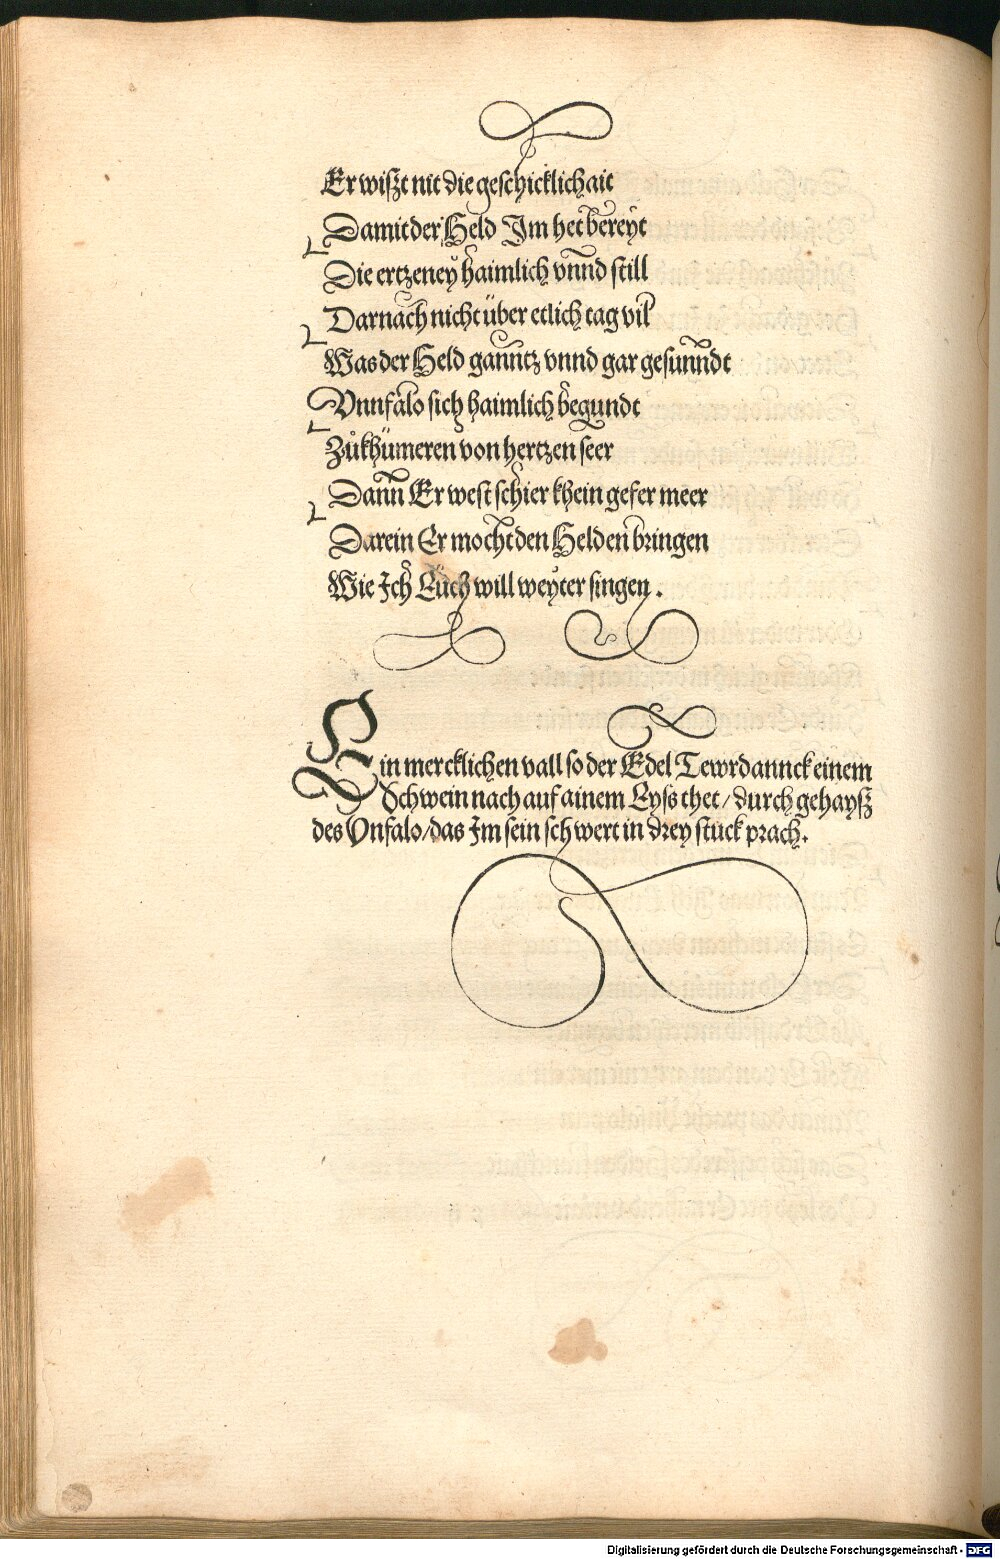 Er wißt nit die geschicklichait
Damit der Held Im het bereyt
Die ertzeney haimlich vnnd still
Darnach nicht über etlich tag vil
Was der Held ganntz vnnd gar gesunndt
Vnnfalo sich haimlich begundt
Zůkhümeren von hertzen seer
Dann Er west schier khein gefer meer
Darein Er mocht den Helden bringen
Wie Ich Euch will weyter singen.
Ein mercklichen vall so der Edel Tewrdannck einem
Schwein nach auf ainem Eyss thet/ durch gehaysß
des Vnfalo/das Im sein schwert in drey stuck prach.
Digitalisierung gefördert durch die Deutsche Forschungsgemeinschaft - DFG